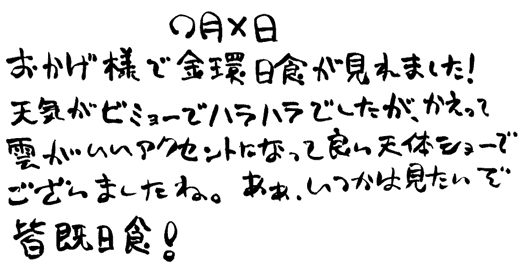 〇月×日
おかげ様で金環日食が見れました!
天気がビミョーでハラハラでしたが、かえって
雲がいいアクセントになって良い天体ショーで
ございましたね。あぁ、いつかは見たいぞ
皆既日食!